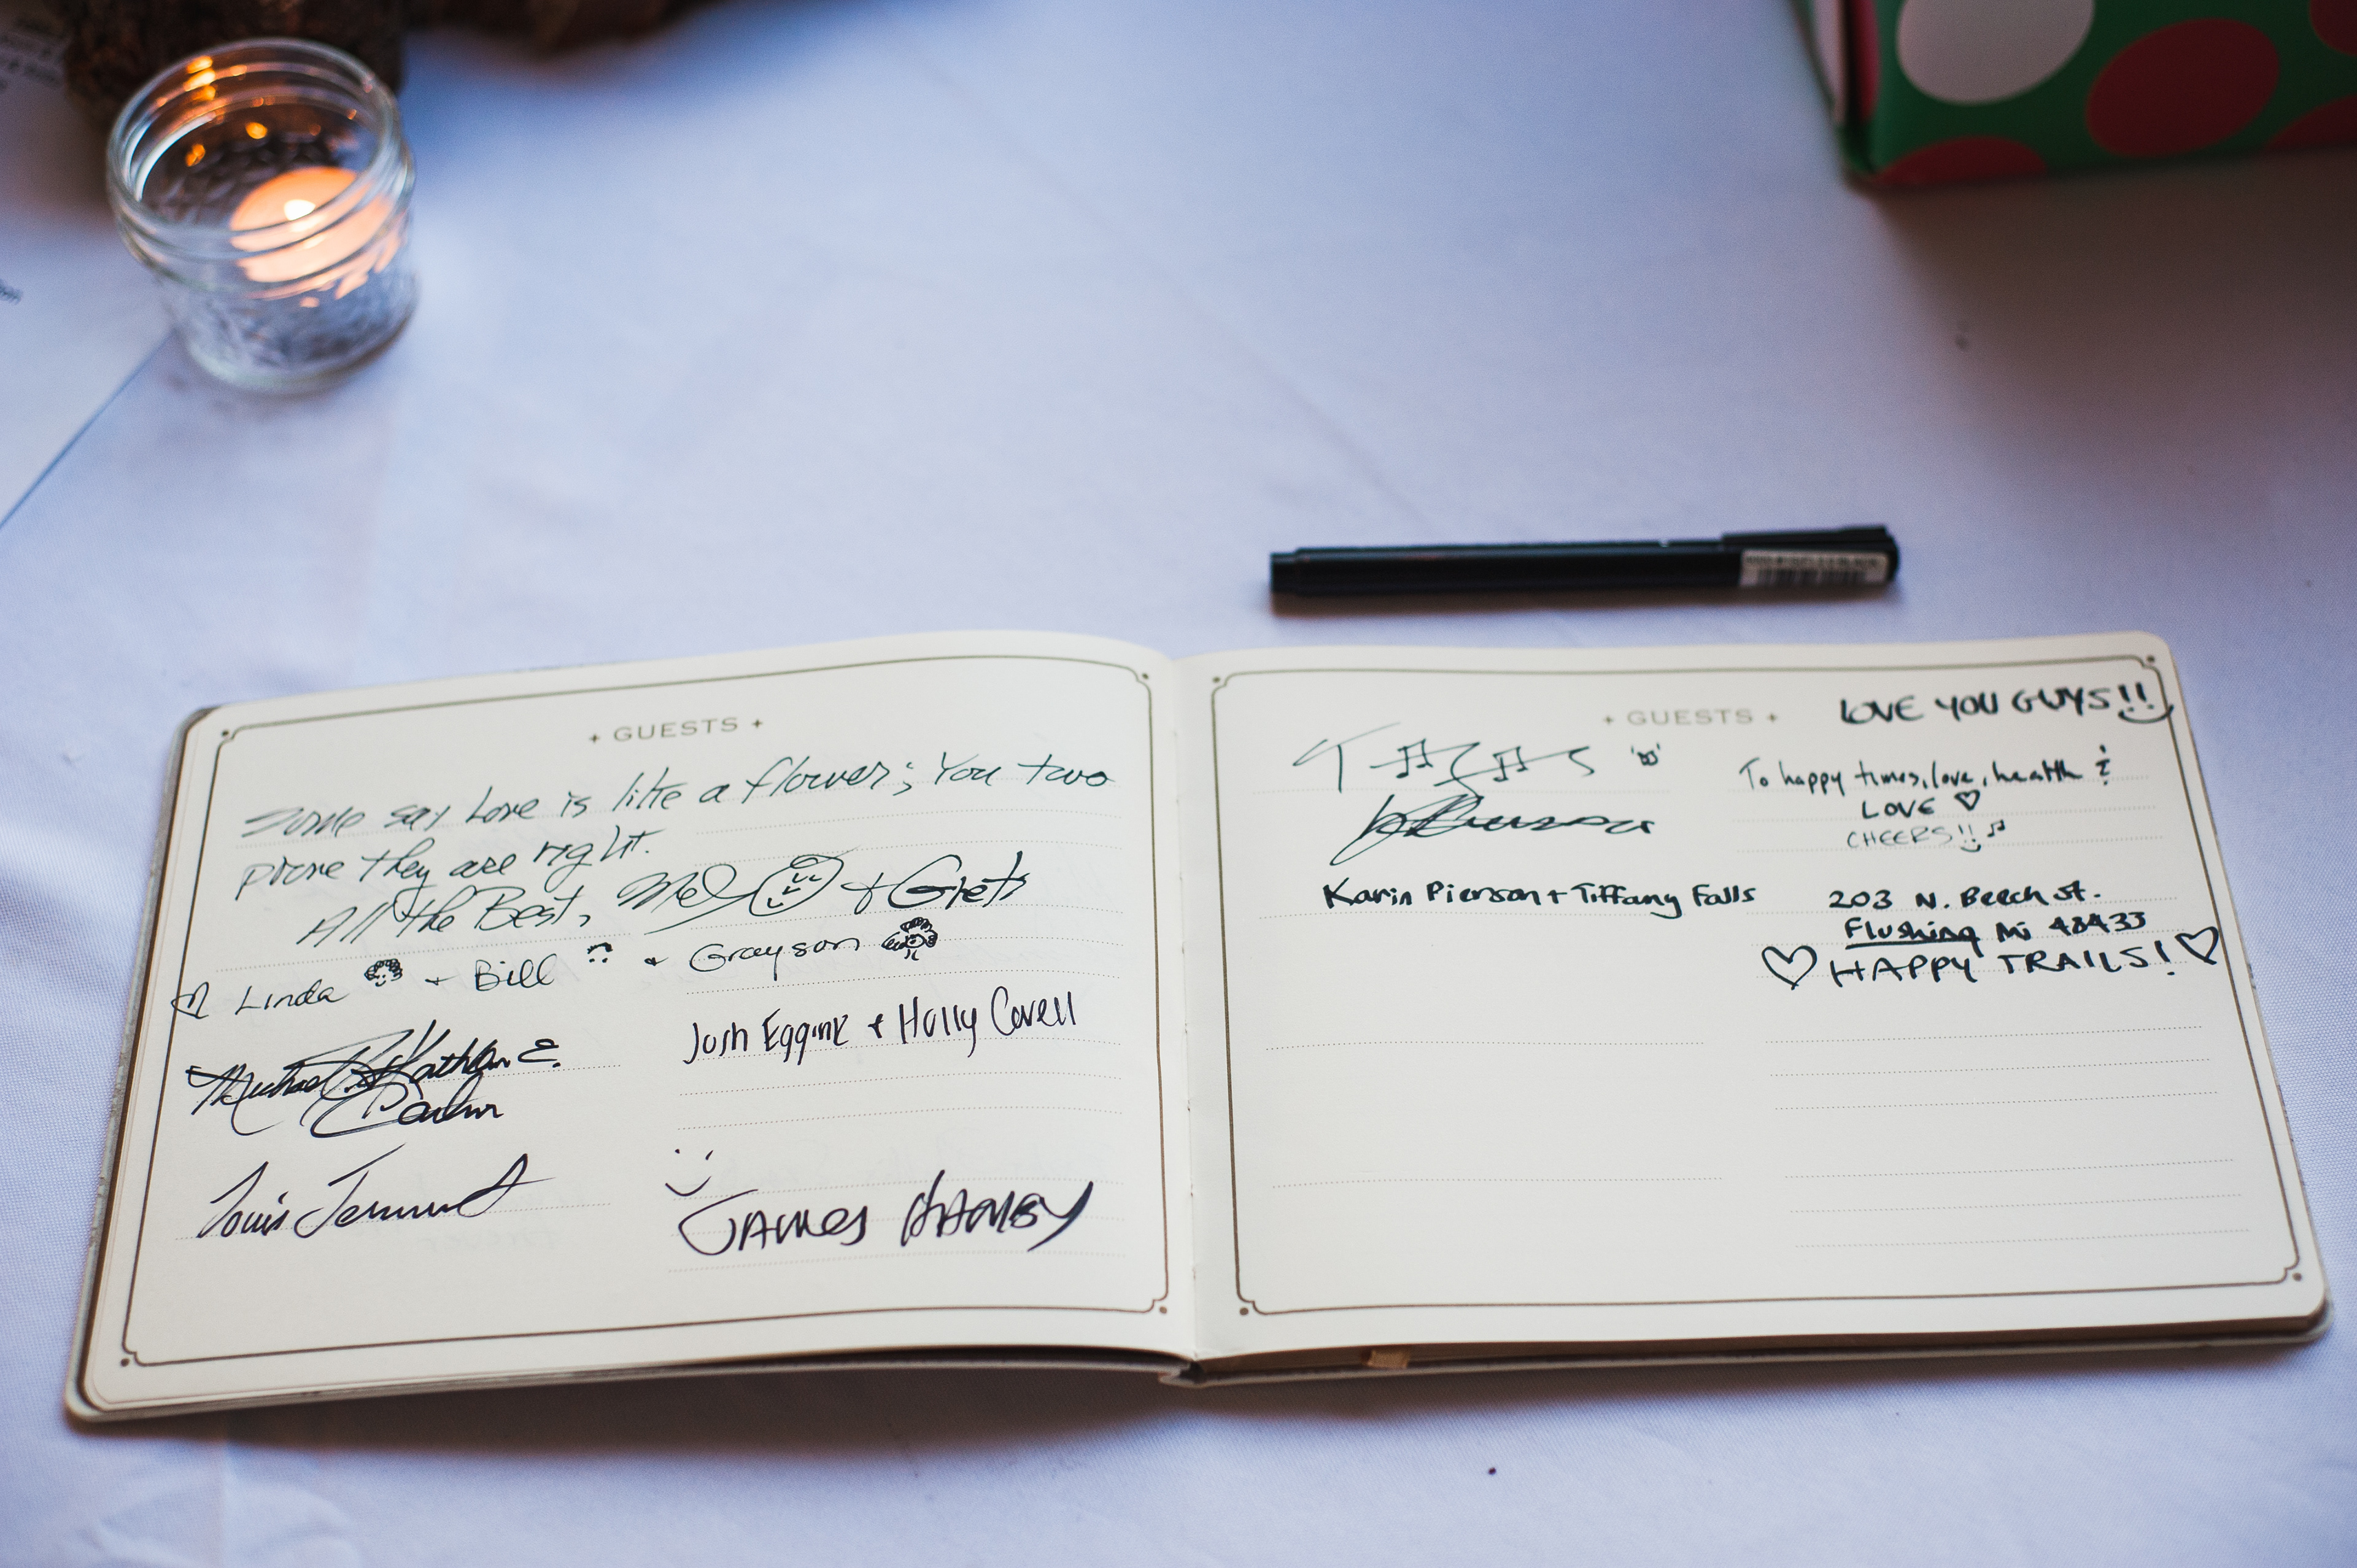 + GUESTS +
Some say Love is like a flower; You two
prove they are right.
All the Best, Mel + Greta
Linda + Bill + Grayson
Michael & Kathleen E.
Josh Eggink + Holly Covell
Louis
James
+ GUESTS +
LOVE YOU GUYS!!
To happy times, love, health &
LOVE
CHEERS!!
Karin Pierson + Tiffany Falls
203 N. Beech St.
Flushing Mi 48433
HAPPY TRAILS!